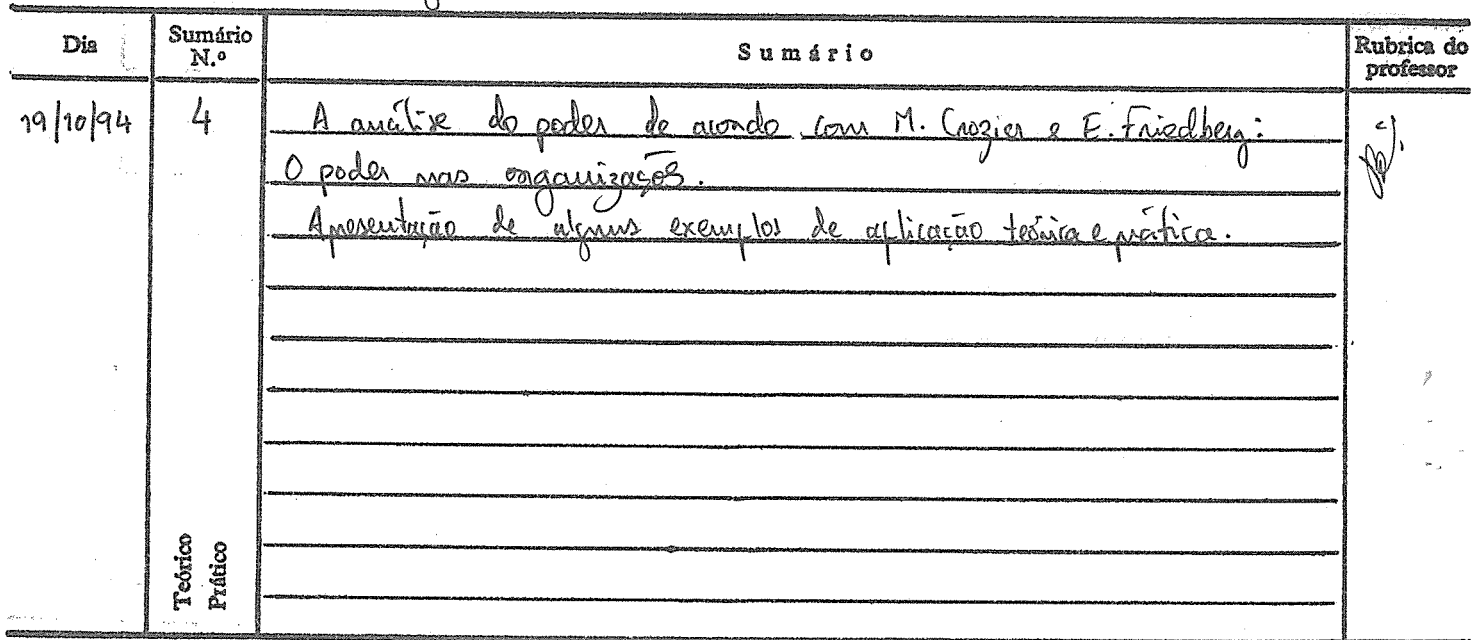 Dia Sumário N.º Sumário Rubrica do professor
19/10/94 4 A análise do poder de acordo com M. Crozier e E. Friedberg:
O poder nas organizações.
Apresentação de alguns exemplos de aplicação teórica e prática.
Teórico
Prático